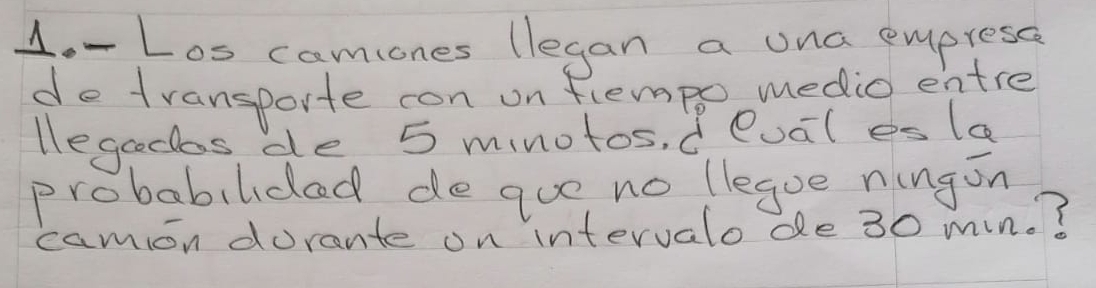 1.- Los camiones llegan a una empresa
de transporte con un tiempo medio entre
llegadas de 5 minutos. ¿Cuál es la
probabilidad de que no llegue ningún
camión durante un intervalo de 30 min.?